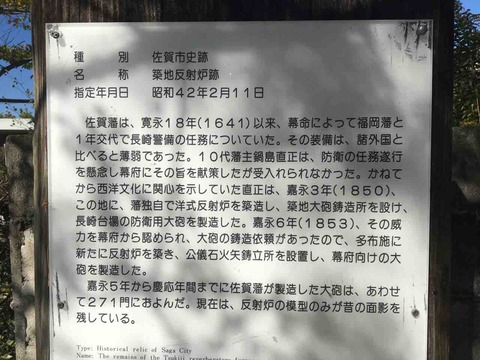 種　別　佐賀市史跡
名　称　築地反射炉跡
指定年月日　昭和42年2月11日
佐賀藩は、寛永18年(1641)以来、幕命によって福岡藩と
1年交代で長崎警備の任務についていた。その装備は、諸外国と
比べると薄弱であった。10代藩主鍋島直正は、防衛の任務遂行
を懸念し幕府にその旨を献策したが受入れられなかった。かねて
から西洋文化に関心を示していた直正は、嘉永3年(1850)、
この地に、藩独自で洋式反射炉を築造し、築地大砲鋳造所を設け、
長崎台場の防衛用大砲を製造した。嘉永6年(1853)、その威
力を幕府から認められ、大砲の鋳造依頼があったので、多布施に
新たに反射炉を築き、公儀石火矢鋳立所を設置し、幕府向けの大
砲を製造した。
嘉永5年から慶応年間までに佐賀藩が製造した大砲は、あわせ
て271門におよんだ。現在は、反射炉の模型のみが昔の面影を
残している。
Type: Historical relic of Saga City
Name: The remains of the Tsukiji reverberatory